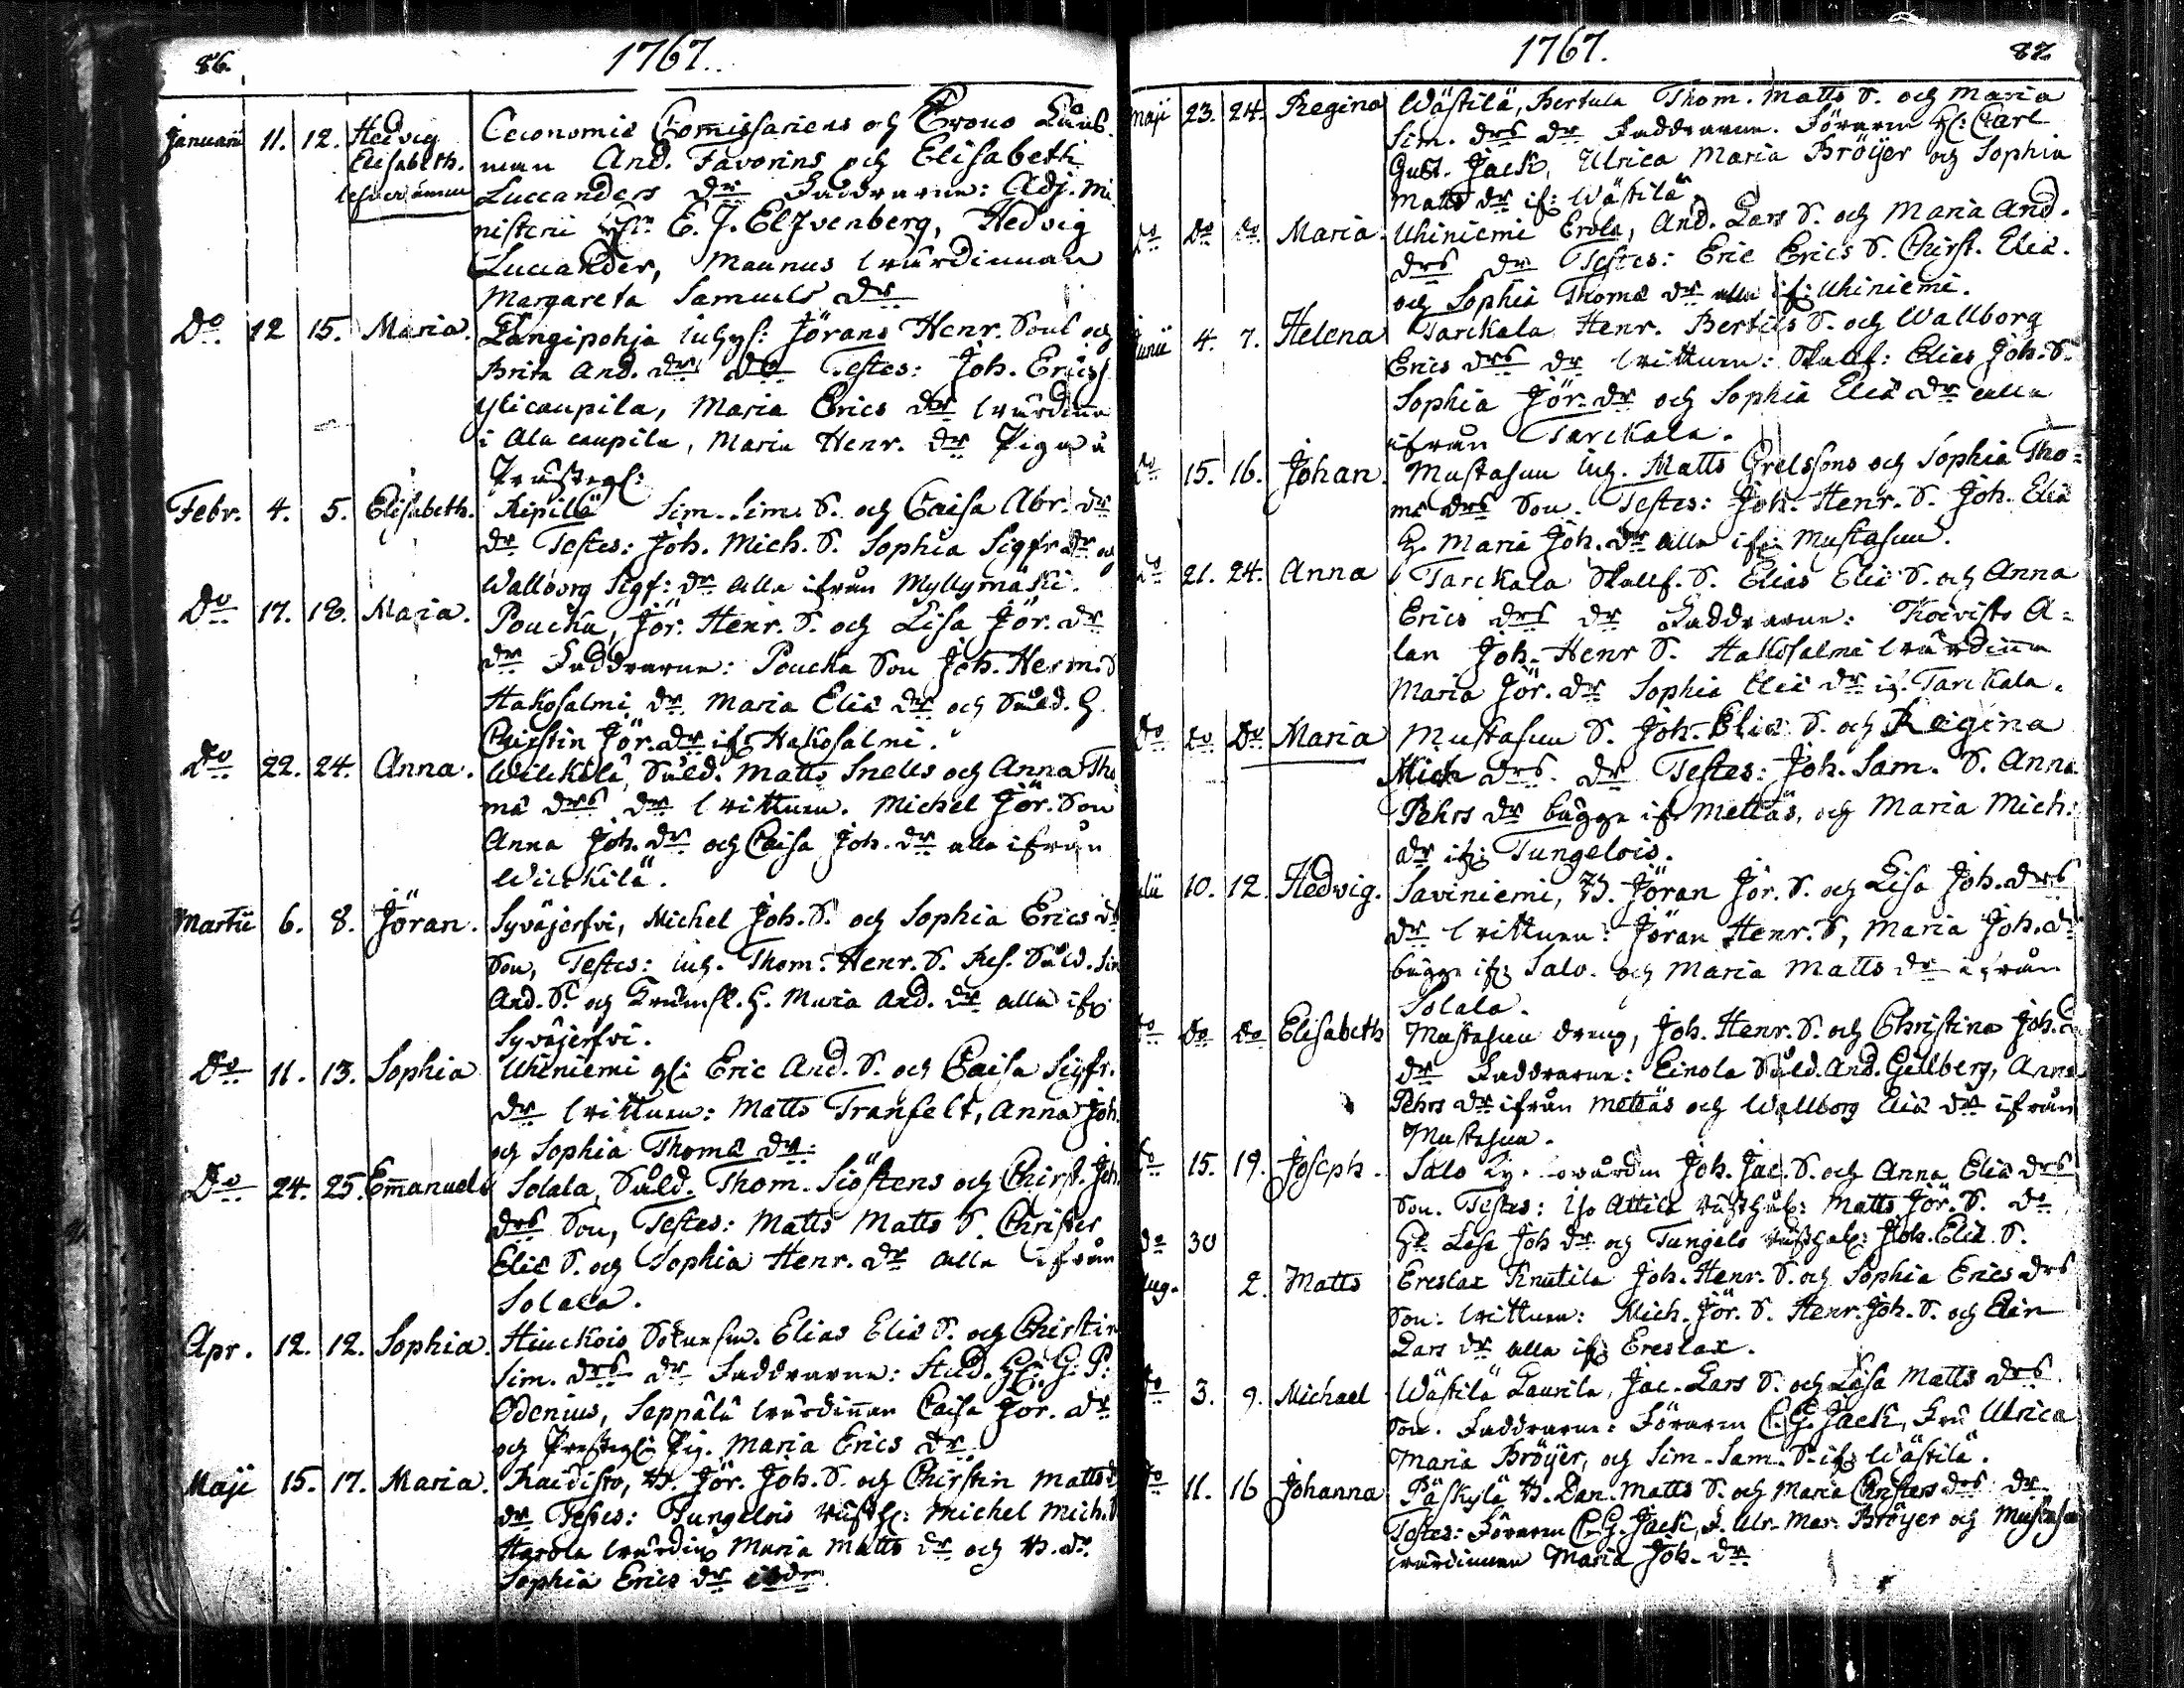 86.
1767.
Januarii 11. 12. Hedvig Oeconomie Commissariens och Crono Läns-
Elisabeth. man And. Favorins och Elisabeth
Luccanders dr Faddrarne: Adj. Mi-
nisterii E. J. Elfvenberg, Hedvig
Luccander, Maunus wärdinnan
Margareta Samuels dr
Do 12 15. Maria. Långipohja Jörans Henr. Sons och
Brita And. drs dr Testes: Joh. Erics S.
Ylicaupila, Maria Erics dr wärdinna
i Ala caupila, Maria Henr. dr Piga å
Prästeg:
Febr. 4. 5. Elisabeth. Ripilä Sim. Sim. S. och Caisa Abr. dr
dr Testes: Joh. Mich. S. Sophia Sigfr. dr och
Wallborg Sigf: dr alla ifrån Myllymäki.
Do 17. 18. Maria. Poucka, Jör. Henr. S. och Lisa Jör. dr
dr Faddrarne: Poucka Son Joh. Herm. S
Hakosalmi dr Maria Eliæ dr och Såld. H.
Chirstin Jör. dr if: Hakosalmi.
Do 22. 24. Anna. Wilckilä, Såld. Matts Snells och Anna Tho
mæ drs dr wittnen. Michel Jör. Son
Anna Joh. dr och Caisa Joh. dr alla ifrån
Wilckilä.
Martii 6. 8. Jöran. Syväjerfvi, Michel Joh. S. och Sophia Erics dr
Son, Testes: Thom. Henr. S. Res. Såld. Sim
And. S. och H. Maria And. dr alla ifr:
Syväjerfvi.
Do 11. 13. Sophia Uhiniemi Eric And. S. och Caisa Sigfr.
dr wittnen: Matts Tranfelt, Anna Joh.
och Sophia Thomæ dr:
Do 24. 25. Emanuel Solala, Såld. Thom. Siöstens och Chirst. Joh.
drs Son, Testes: Matts Matts S. Christer
Eliæ S. och Sophia Henr. dr alla ifrån
Solala.
Apr. 12. 12. Sophia. Hiuckois Elias Eliæ S. och Chirstin
Sim. drs dr Faddrarne: Stud. H: G: P:
Odenius, Seppälä wärdinnan Caisa Jör. dr
och Prästeg: Pig. Maria Erics dr
Maji 15. 17. Maria. Raidisto, B. Jör. Joh. S. och Chirstin Matts d
dr Testes: Tungelois Michel Mich. S
Harola wärdin Maria Matts dr och B. dr
Sophia Erics dr
1767.
87.
Maji 23. 24. Regina Wästilä, Bertula Thom. Matts S. och Maria
Sim. drs dr Faddrarne. Förarn H: Carl
Gust. Jack, Ulrica Maria Bröijer och Sophia
Matts dr if: Wästilä.
Do Do Do Maria. Uhiniemi Erola, And. Lars S. och Maria And.
drs dr Testes: Eric Erics S. Chirst. Eliæ.
och Sophia Thomæ dr alla if: Uhiniemi.
Junii 4. 7. Helena Tarckala Henr. Bertils S. och Wallborg
Erics drs dr wittnen: Skallf: Elias Joh. S.
Sophia Jör. dr och Sophia Eliæ dr alla
ifrån Tarckala.
Do 15. 16. Johan. Mustasuu Matts Grelssons och Sophia Tho-
mæ drs Son. Testes: Joh. Henr. S. Joh. Eliæ
H. Maria Joh. dr alla ifr: Mustasuu.
Do 21. 24. Anna Tarckala Skallf. S. Elias Eliæ S. och Anna
Erics drs dr Faddrarne: Koivisto A-
lan Joh. Henr S. Hakosalmi wärdinna
Maria Jör. dr Sophia Eliæ dr if. Tarckala.
Do Do Do Maria Mustasuu S. Joh. Eliæ S. och Regina
Mich drs dr Testes: Joh. Sam. S. Anna
Pehrs dr bägge if Mettäs, och Maria Mich:
dr if: Tungelois.
Julii 10. 12. Hedvig. Saviniemi, B. Jöran Jör. S. och Lisa Joh. drs
dr wittnen: Jöran Henr. S, Maria Joh. dr
bägge if: Salo. och Maria Matts dr ifrån
Solala.
Do Do Do Elisabeth Mustasuu dreng, Joh. Henr. S. och Christina Joh. d
dr Faddrarne: Einola Såld. And. Gellberg, Anna
Pehrs dr ifrån Mettäs och Wallborg Eliæ dr ifrån
Mustasuu.
Do 15. 19. Joseph. Salo Joh. Jac. S. och Anna Eliæ drs
Son. Testes: Iso Attila Matts Jör. S. Do
Do 30 Lisa Joh dr och Tungelo Joh. Eliæ S.
Aug. 2. Matts Ereslax Knutila Joh. Henr. S. och Sophia Erics drs
Son. wittnen: Mich. Jör. S. Henr. Joh. S. och Elin
Lars dr alla if: Ereslax.
Do 3. 9. Michael Wästilä Laurila, Jac. Lars S. och Lisa Matts drs
Son. Faddrarne: Förarn C. G. Jack, Fru Ulrica
Maria Bröijer, och Sim. Sam. S. if: Wästilä.
Do 11. 16 Johanna Päskylä B. Dan. Matts S. och Maria Christers drs dr
Testes: Förarn C. G. Jack, F. Ulr. Mar. Bröijer och Mustasuu
wärdinnan Maria Joh. dr